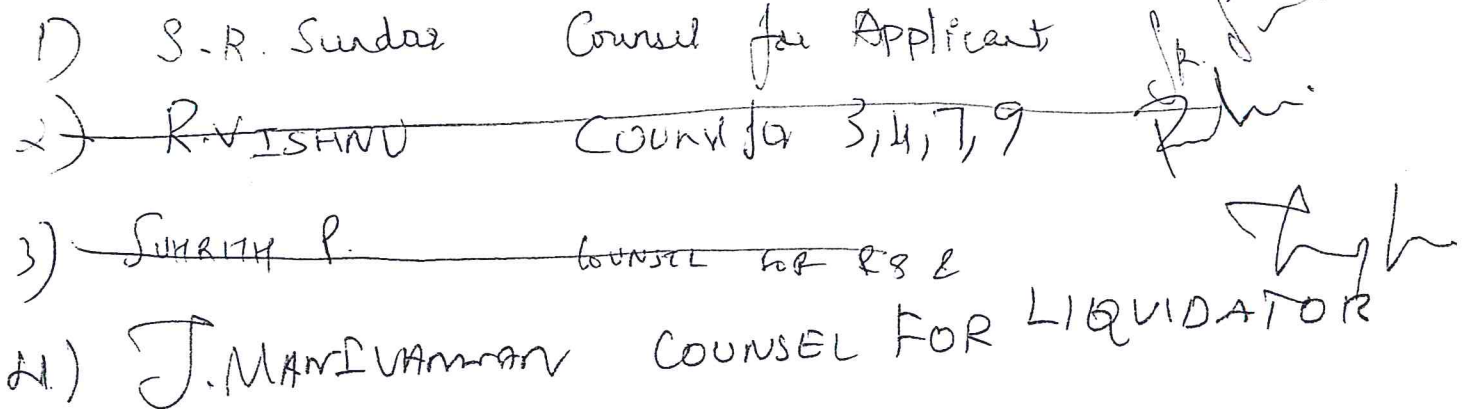 1) S.R. Sundar Counsel for Applicant
2) R.VISHNU Counsel for 3,4,7,9
3) SUHRITH P. COUNSEL FOR R8 &
4.) J.MANIVANNAN COUNSEL FOR LIQUIDATOR